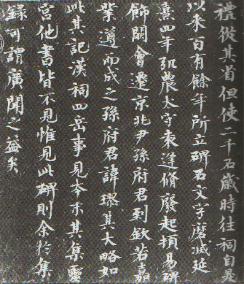 禮從其省但使二千石歲時往祠自是
以來百有餘年所立碑石文字磨滅延
熹四年弘農太守袁逢脩廢起頓易碑
飾闕會遷京兆尹孫府君到欽若嘉
業遵而成之孫府君諱璆其大略如
此其記漢祠四岳事見本末其集靈
宮他書皆不見惟見此碑則余於集
錄可謂廣聞之益矣